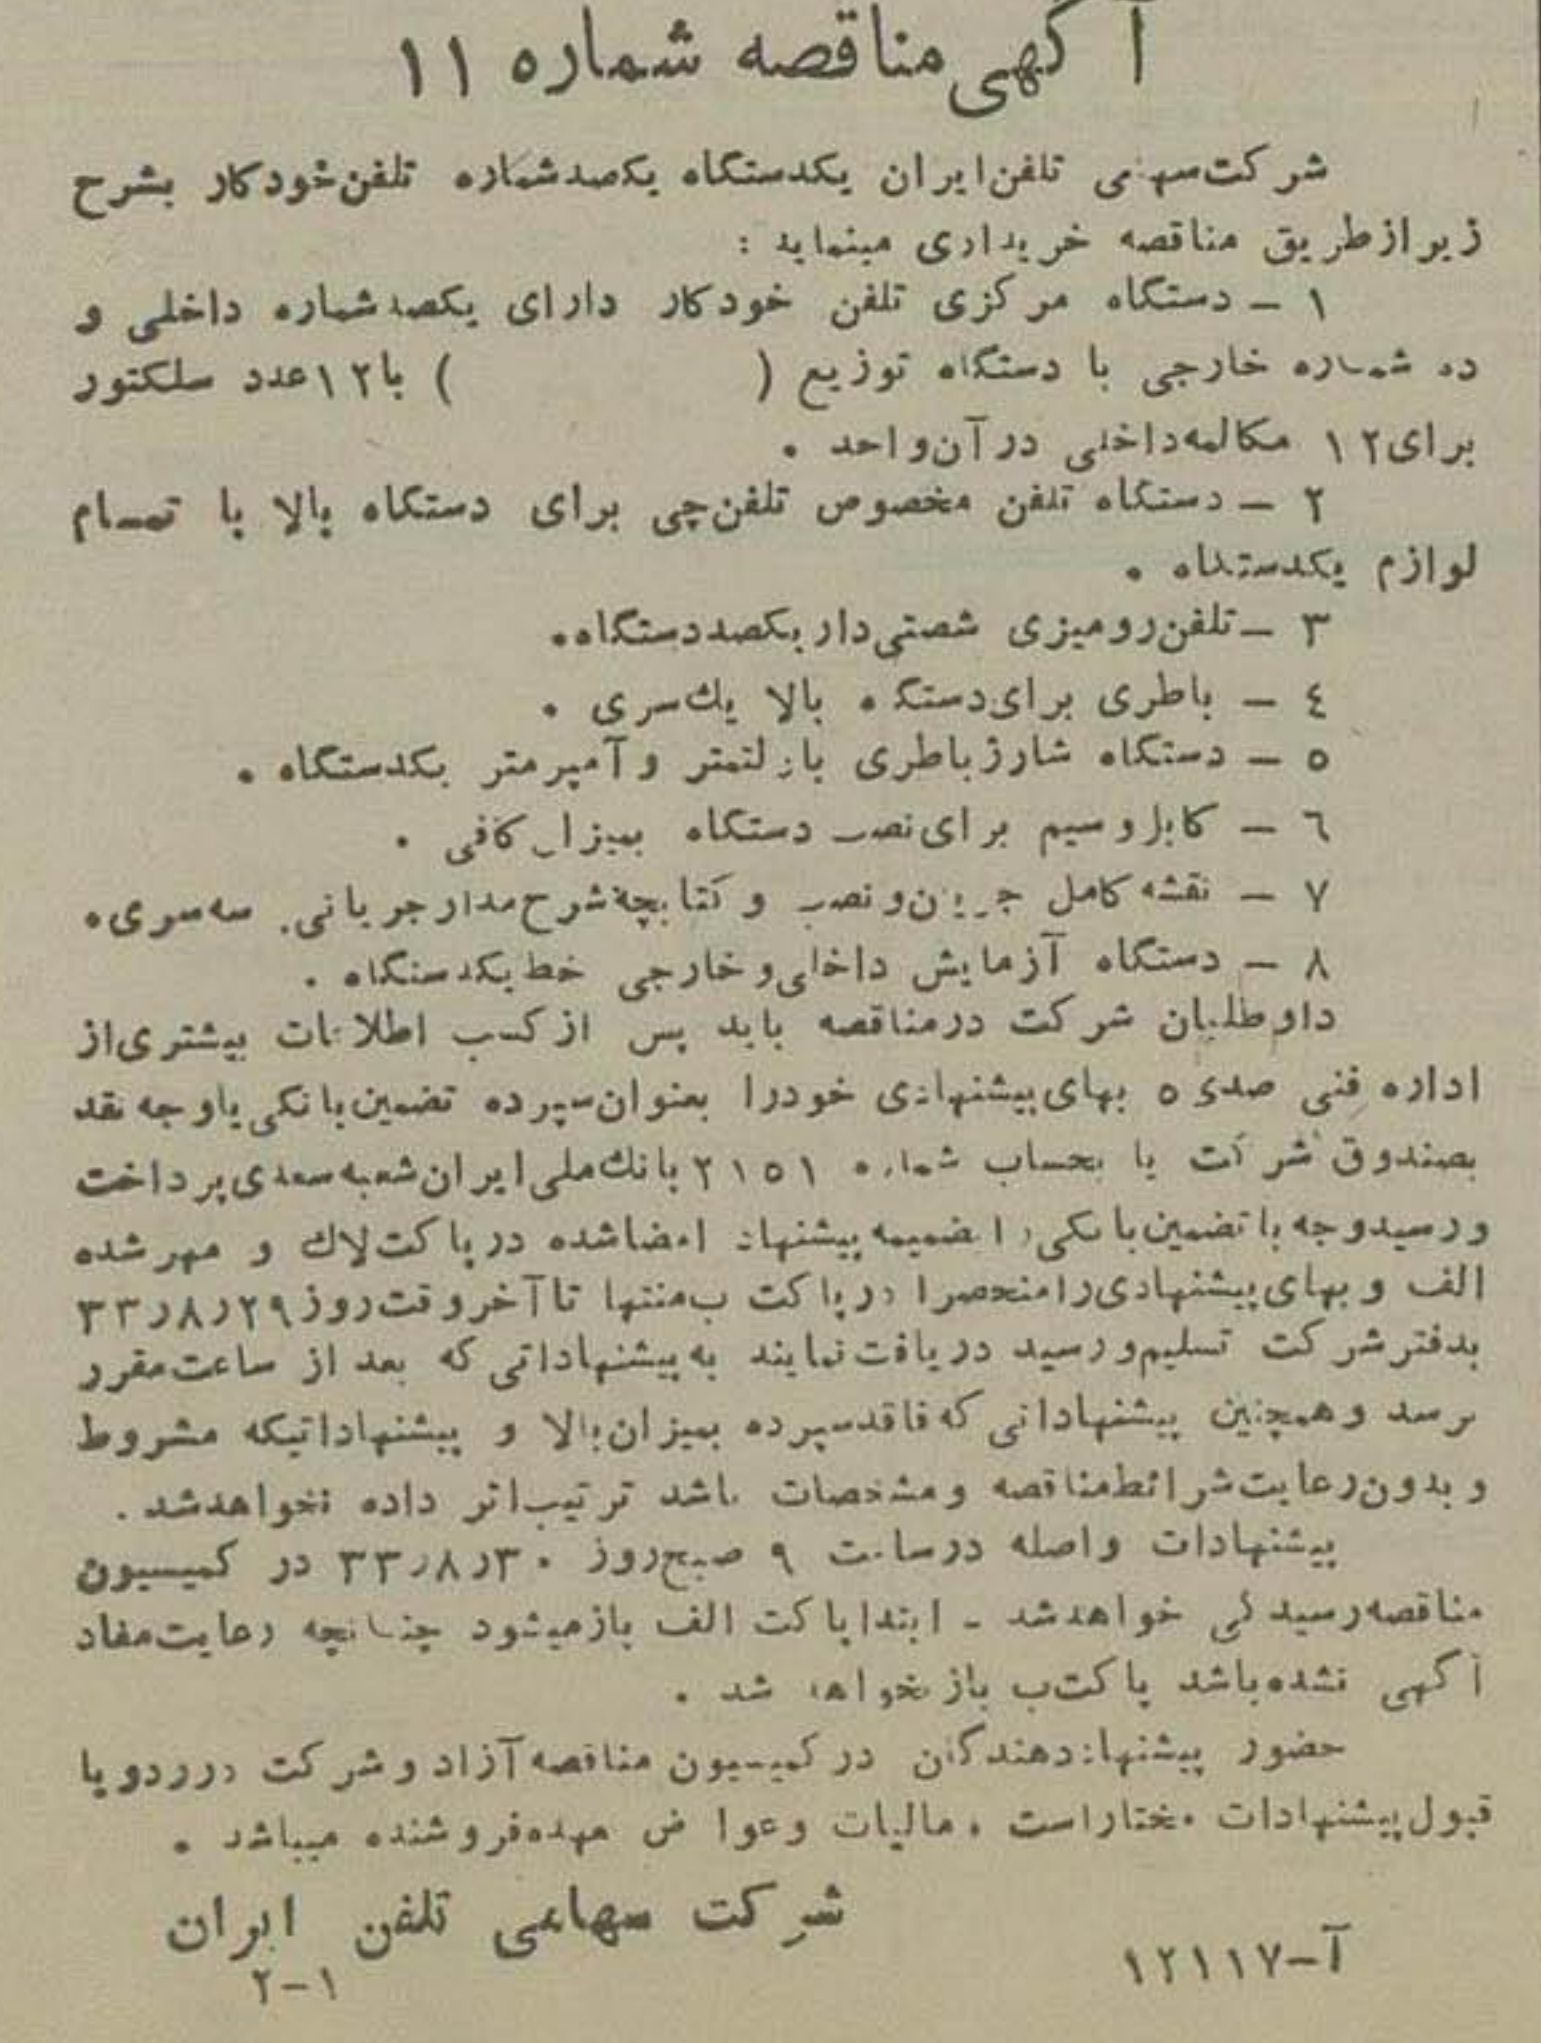 آگهی مناقصه شماره ۱۱
شرکت سهامی تلفن ایران یکدستگاه یکصد شماره تلفن خودکار بشرح
زیر از طریق مناقصه خریداری مینماید :
۱ – دستگاه مرکزی تلفن خودکار دارای یکصد شماره داخلی و
ده شماره خارجی با دستگاه توزیع ( ) با ۱۲ عدد سلکتور
برای ۱۲ مکالمه داخلی در آن واحد .
۲ – دستگاه تلفن مخصوص تلفن‌چی برای دستگاه بالا با تمام
لوازم یکدستگاه .
۳ – تلفن رومیزی شصتی‌دار یکصد دستگاه .
٤ – باطری برای دستگاه بالا یك سری .
٥ – دستگاه شارژ باطری با ولتمتر و آمپرمتر یکدستگاه .
٦ – کابل و سیم برای نصب دستگاه بمیزان کافی .
۷ – نقشه کامل جریان و نصب و کتابچهٔ شرح مدار جریانی . سه سری .
۸ – دستگاه آزمایش داخلی و خارجی خط یکدستگاه .
داوطلبان شرکت در مناقصه باید پس از کسب اطلاعات بیشتری از
اداره فنی صدی ٥ بهای پیشنهادی خود را بعنوان سپرده تضمین بانکی یا وجه نقد
بصندوق شرکت یا بحساب شماره ۲۱٥۱ بانك ملی ایران شعبه سعدی پرداخت
و رسید وجه یا تضمین بانکی را ضمیمه پیشنهاد امضا شده در پاکت لاك و مهر شده
الف و بهای پیشنهادی را منحصرا در پاکت ب منتها تا آخر وقت روز ۲۹ر۸ر۳۳
بدفتر شرکت تسلیم و رسید دریافت نمایند به پیشنهاداتی که بعد از ساعت مقرر
برسد و همچنین پیشنهاداتی که فاقد سپرده بمیزان بالا و پیشنهاداتیکه مشروط
و بدون رعایت شرائط مناقصه و مشخصات باشد ترتیب اثر داده نخواهد شد .
پیشنهادات واصله در ساعت ۹ صبح روز ۳۰ر۸ر۳۳ در کمیسیون
مناقصه رسیدگی خواهد شد – ابتدا پاکت الف باز میشود چنانچه رعایت مفاد
آگهی نشده باشد پاکت ب باز نخواهد شد .
حضور پیشنهاد دهندگان در کمیسیون مناقصه آزاد و شرکت در رد و یا
قبول پیشنهادات مختار است . مالیات و عوارض بعهده فروشنده میباشد .
شرکت سهامی تلفن ایران
آ–۱۲۱۱۷
۲–۱